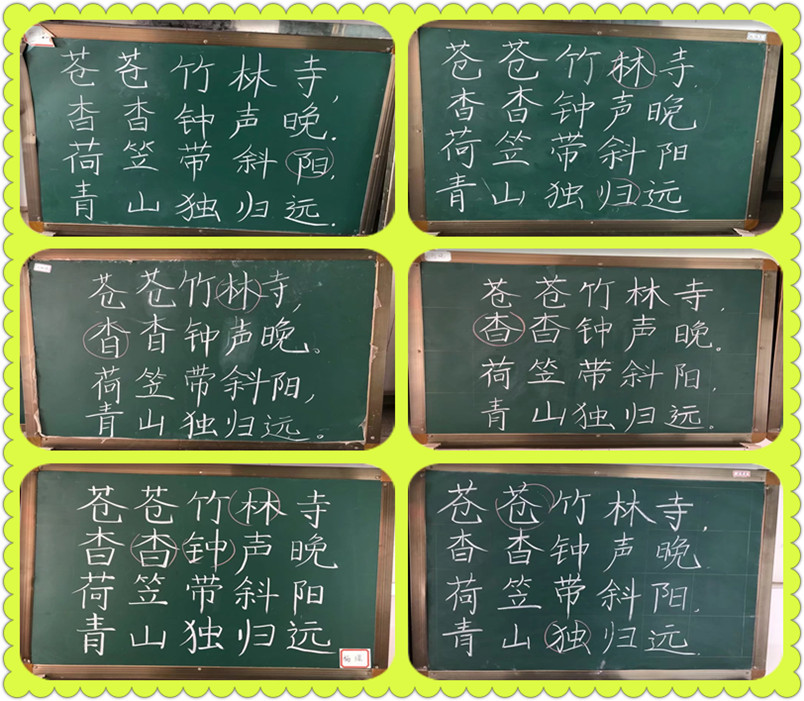 苍苍竹林寺,
杳杳钟声晚.
荷笠带斜阳,
青山独归远.
苍苍竹林寺
杳杳钟声晚
荷笠带斜阳
青山独归远
苍苍竹林寺,
杳杳钟声晚。
荷笠带斜阳,
青山独归远。
苍苍竹林寺,
杳杳钟声晚。
荷笠带斜阳,
青山独归远。
苍苍竹林寺
杳杳钟声晚
荷笠带斜阳
青山独归远
苍苍竹林寺,
杳杳钟声晚.
荷笠带斜阳.
青山独归远.